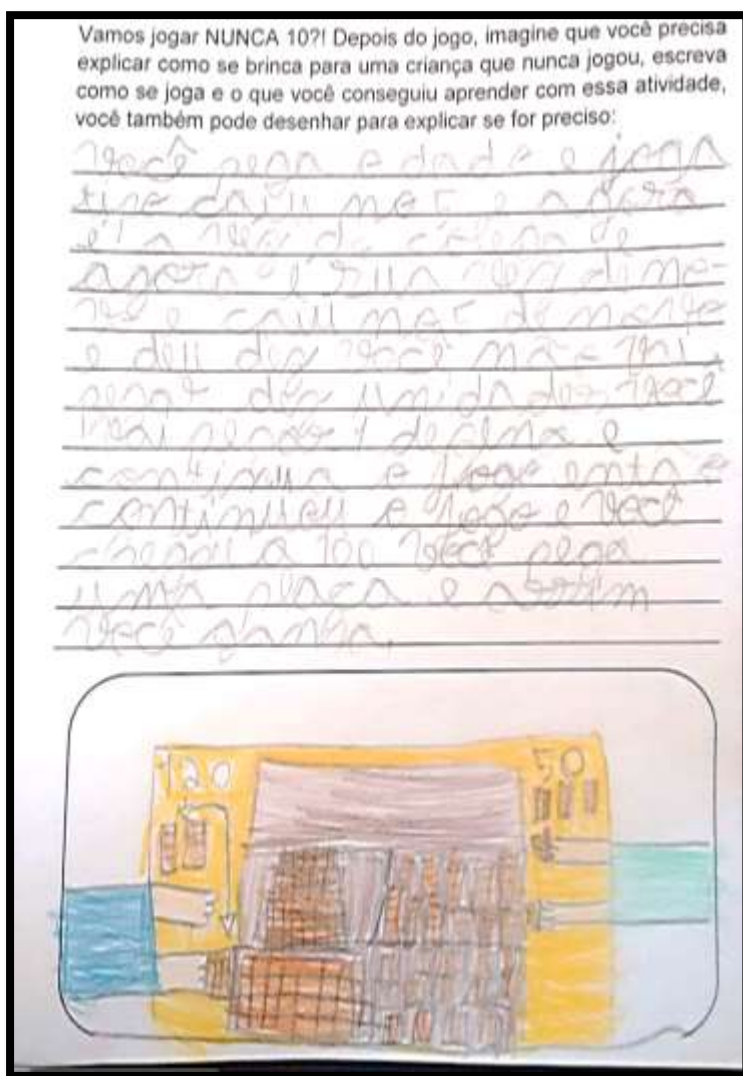 Vamos jogar NUNCA 10?! Depois do jogo, imagine que você precisa
explicar como se brinca para uma criança que nunca jogou, escreva
como se joga e o que você conseguiu aprender com essa atividade,
você também pode desenhar para explicar se for preciso:
você pega o dado e joga
caiu
agora é sua vez de
e caiu mas
e deu dez você
pegar dez unidades você
vai pegar 1 decima e
continua o jogo então
continuou o jogo e você
chegou a 100 você pega
uma placa e assim
você ganha.
120
50